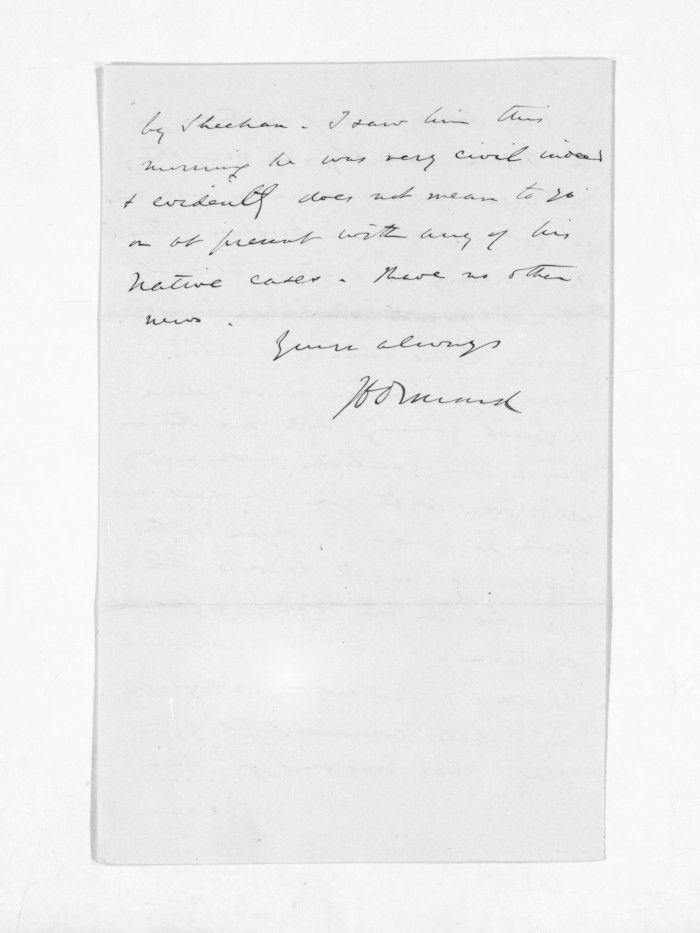 by Sheehan - I saw him this
morning he was very civil indeed
& evidently does not mean to go
on at present with any of his
Native cases - I have no other
news.
Yours always